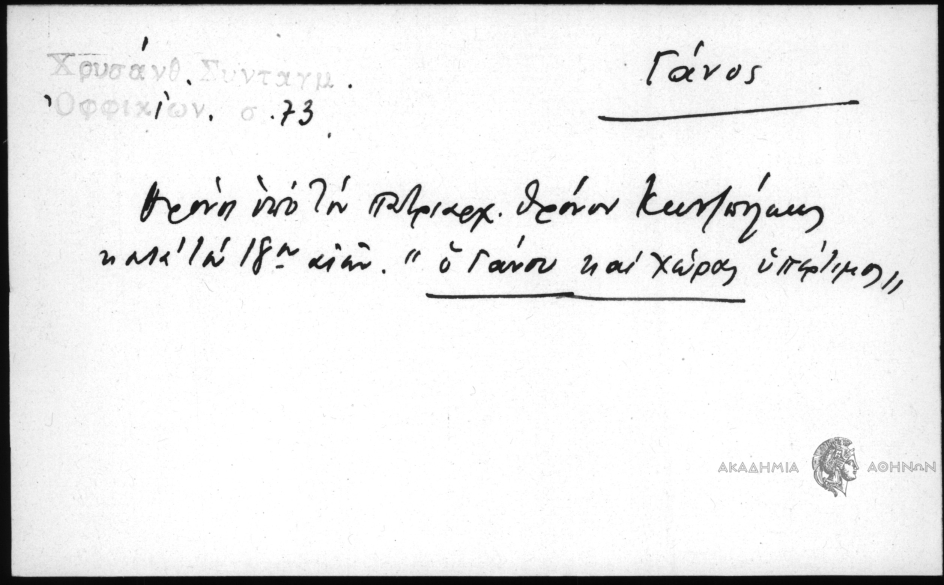 Χρυσάνθ. Συνταγμ.
Ὀφφικίων. σ. 73
Γάνος
ὑπὸ τὸν πατριαρχ. θρόνον Κωνσ/πόλεως
κατὰ τὸν 18ον αἰῶν. "ὁ Γάνου καὶ Χώρας ὑπέρτιμος"
ΑΚΑΔΗΜΙΑ ΑΘΗΝΩΝ